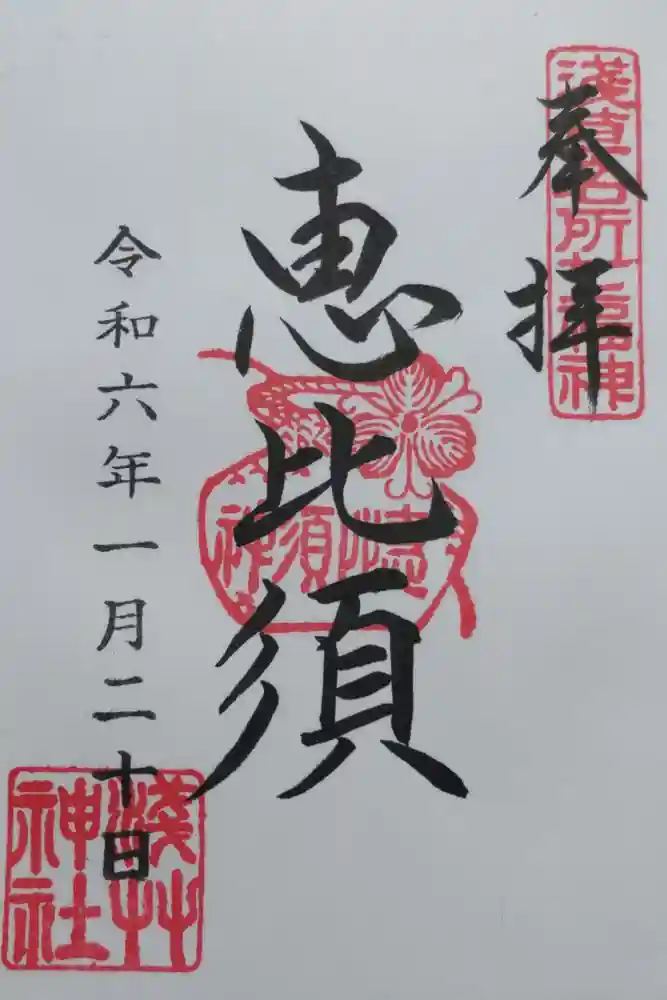 奉拝
淺草名所七福神
恵比須
恵比須神
令和六年一月二十日
淺艸神社